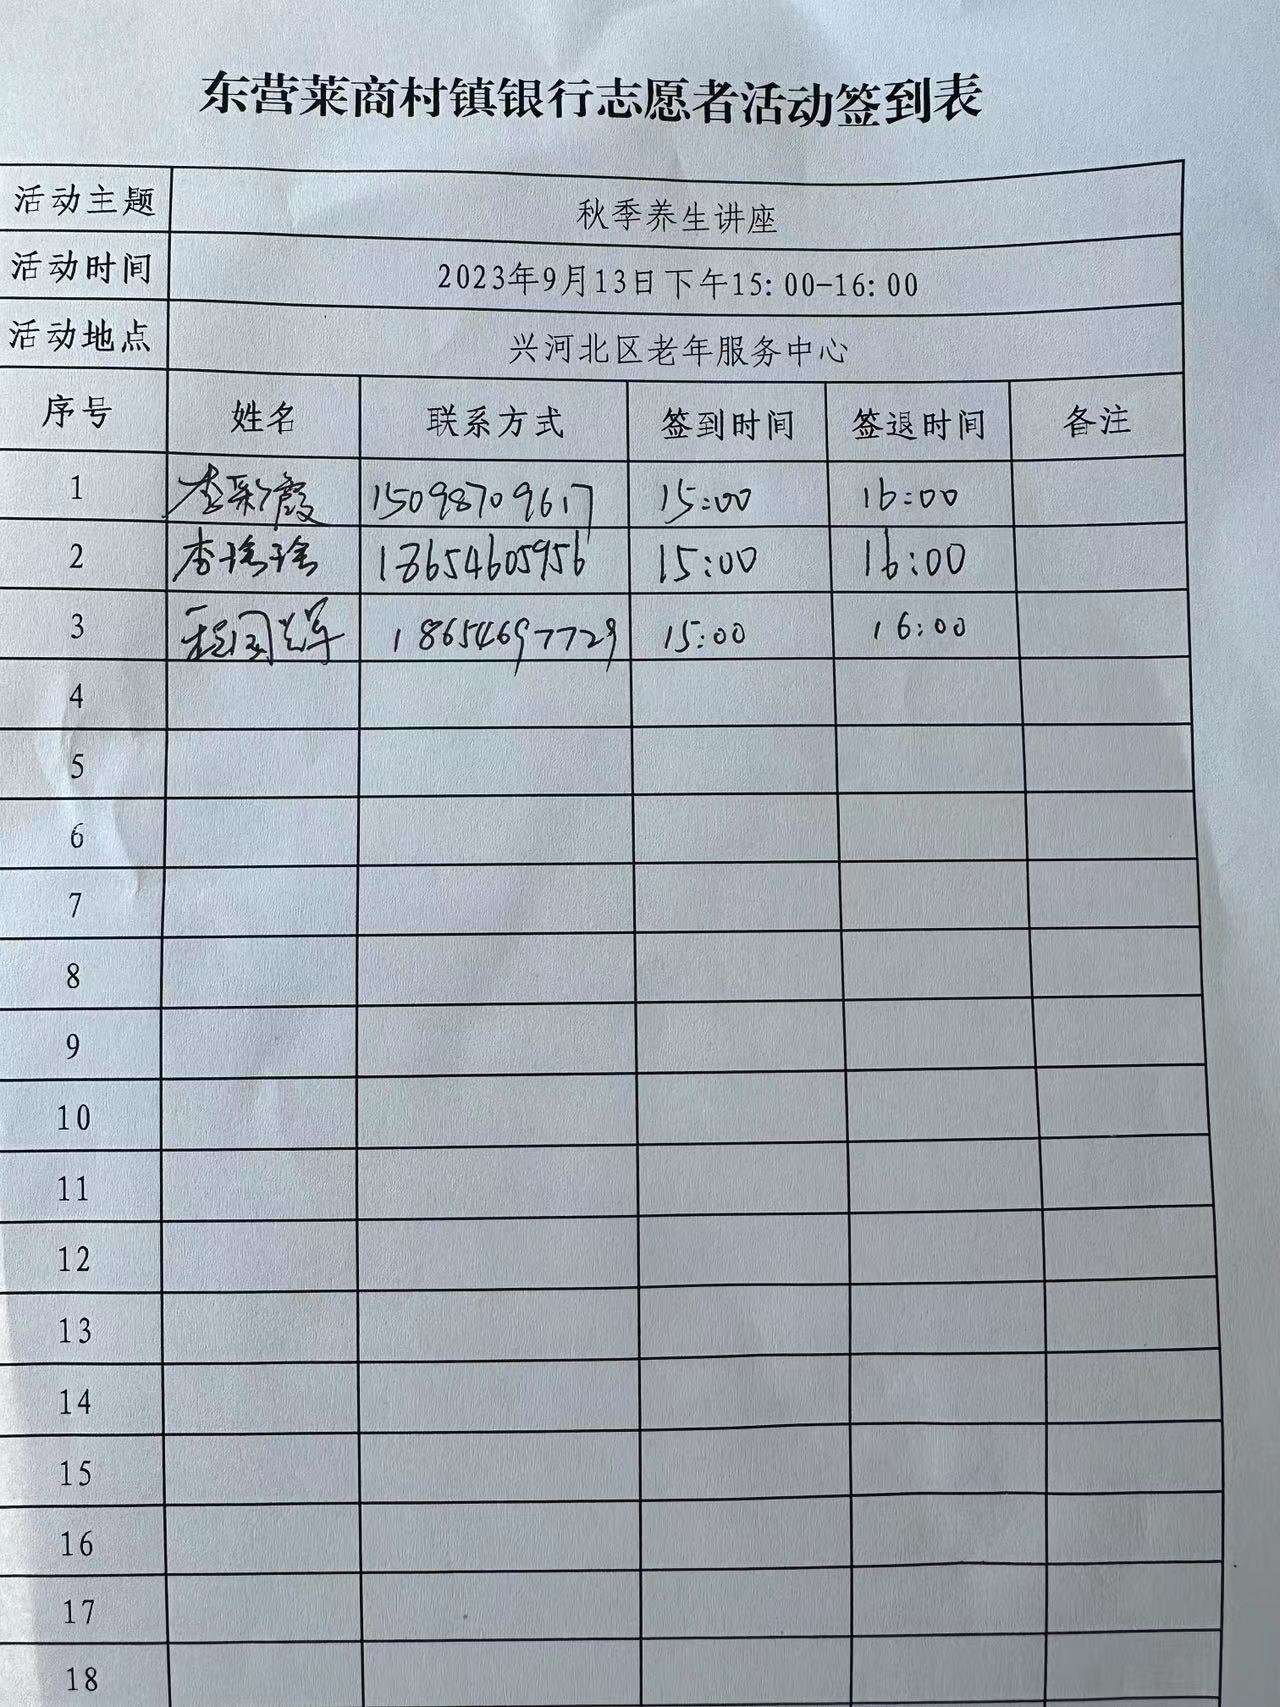 东营莱商村镇银行志愿者活动签到表
活动主题 秋季养生讲座
活动时间 2023年9月13日下午15:00-16:00
活动地点 兴河北区老年服务中心
序号 姓名 联系方式 签到时间 签退时间 备注
1 李彩霞 15098709617 15:00 16:00
2 李瑶瑶 18654605956 15:00 16:00
3 程国光军 18654697729 15:00 16:00
4
5
6
7
8
9
10
11
12
13
14
15
16
17
18